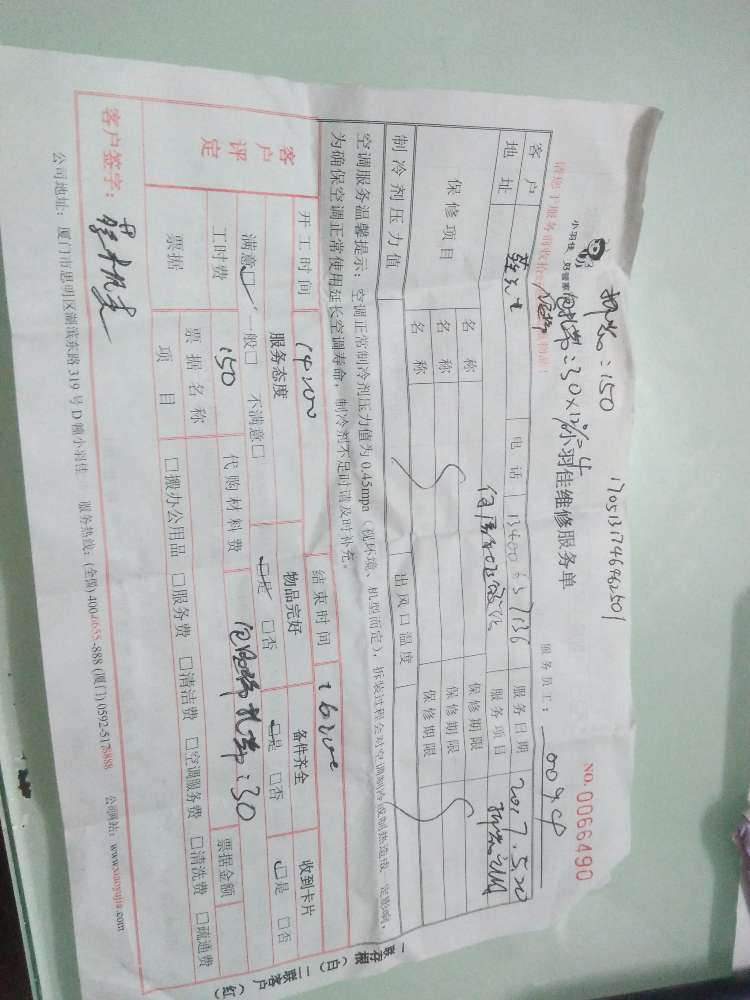 17051317464462501
拆装：150
小羽佳
好管家
包扎带：30×1
小羽佳维修服务单
NO. 0066490
请您于服务前收拾
服务员工：
客户
地址
电话
服务日期 2017.5.20
服务项目
保修项目
名称
保修期限
名称
保修期限
名称
保修期限
制冷剂压力值
出风口温度
空调服务温馨提示：空调正常制冷剂压力值为0.45mpa（视环境、机型而定），拆装过程会对空调制冷或制热造成一定影响，
为确保空调正常使用延长空调寿命，制冷剂不足时请及时补充。
客户评定
开工时间 14:00
结束时间 16:00
服务态度
物品完好
备件齐全
收到卡片
满意□ 一般□ 不满意□
□是 □否
□是 □否
□是 □否
工时费 150
代购材料费
扎带：30
票据
票据名称
票据金额
项目
□搬办公用品 □服务费 □清洁费 □空调服务费 □清洗费 □疏通费
客户签字：
公司地址：厦门市思明区湖滨东路319号D幢小羽佳
服务热线：(全国)400-1655-888 (厦门)0592-5178888
公司网站：www.xiaoyujia.com
一联存根（白） 二联客户（红）